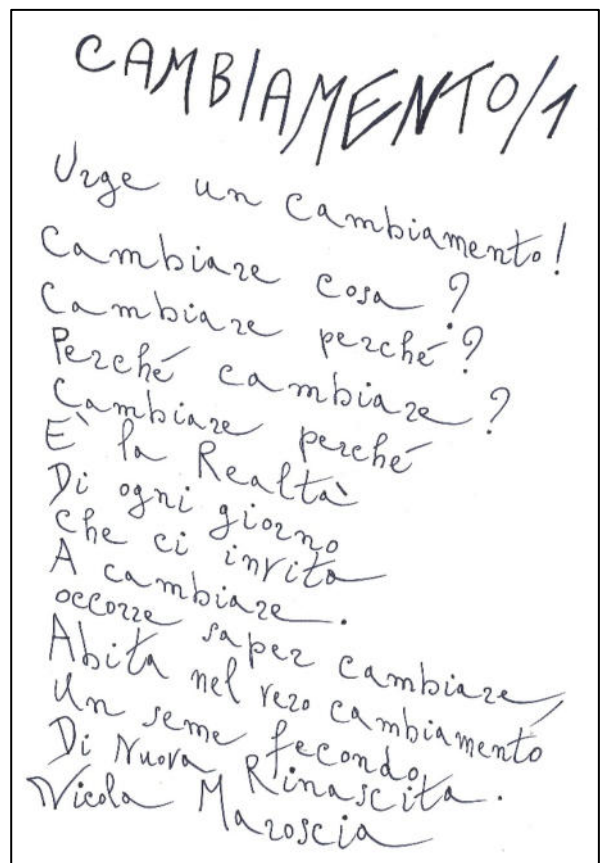 CAMBIAMENTO/1
Urge un cambiamento!
Cambiare cosa?
Cambiare perché?
Perché cambiare?
Cambiare perché
E` la Realtà
Di ogni giorno
che ci invita
A cambiare.
occorre saper cambiare,
Abita nel vero cambiamento
Un seme fecondo,
Di Nuova Rinascita.
Nicola Maroscia